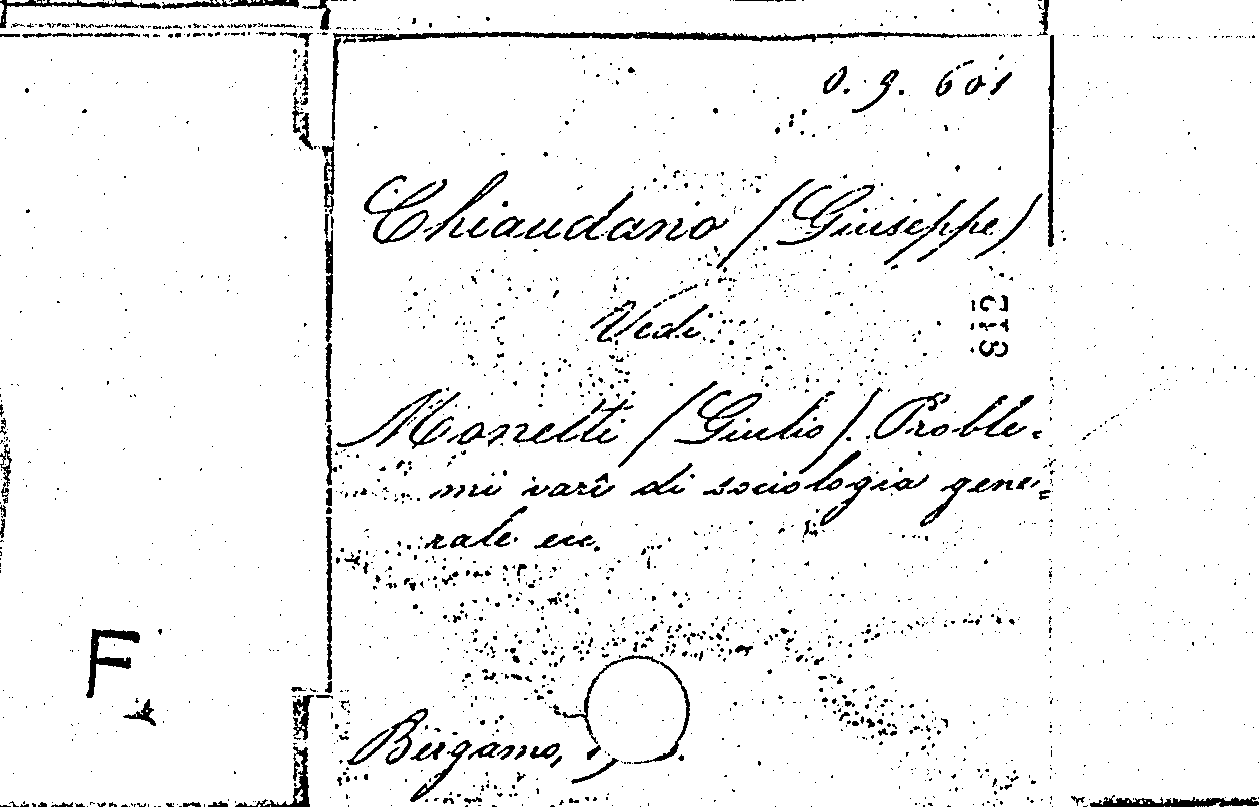 0. 9. 601
Chiaudano (Giuseppe)
Vedi
812
Monetti (Giulio). Proble-
mi varî di sociologia gene=
rale ecc.
F
Bergamo,